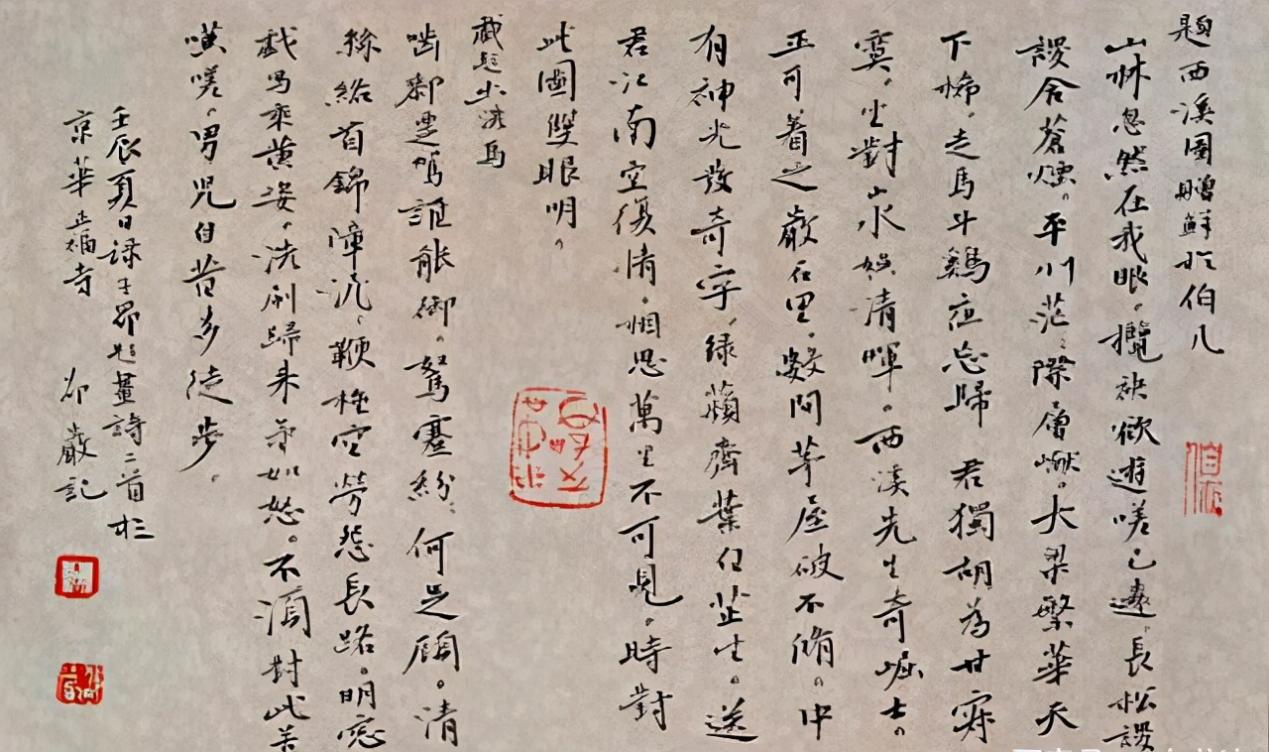 題西溪圖贈鮮於伯几
山林忽然在我眼。攬袂欲遊嗟已遠。長松謖
謖含蒼煙。平川茫〻際層巘。大梁繁華天
下稀。走馬斗鷄夜忘歸 君獨胡為甘寂
寞。坐對山水娛清暉。西溪先生奇崛士。
正可着之巖石里。數間茅屋破不脩。中
有神光發奇字。綠蘋齊葉白芷生。送
君江南空復情。相思萬里不可見。時對
此圖雙眼明。
戲題出洗馬
嚙鳴誰能御。駑蹇紛〻何足顧。清
絲絡首錦障泥。鞭棰空勞怨長路。明窓
戲寫乘黃姿。洗刷歸來氣如怒。不須對此苦
嘆嗟。男兒自昔多徒步。
壬辰夏日錄子昂題畫詩二首於
京華正福寺 巖記